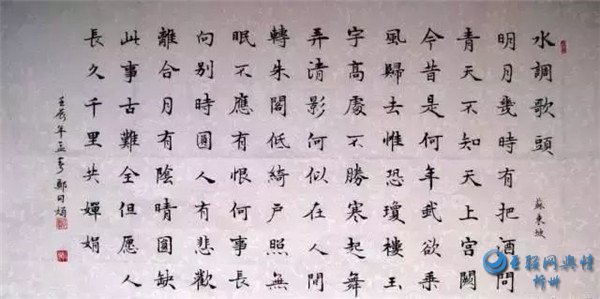 水調歌頭
蘇東坡
明月幾時有把酒問
青天不知天上宮闕
今昔是何年我欲乘
風歸去惟恐瓊樓玉
宇高處不勝寒起舞
弄清影何似在人間
轉朱閣低綺戶照無
眠不應有恨何事長
向別時圓人有悲歡
離合月有陰晴圓缺
此事古難全但愿人
長久千里共嬋娟
壬辰年孟春鄭
互联网舆情